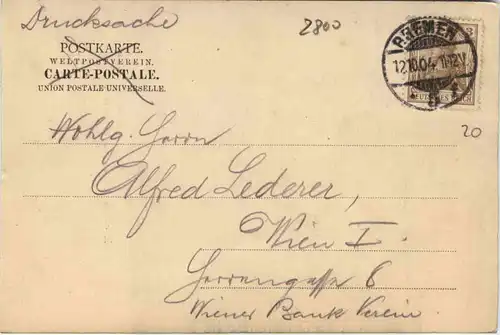 Drucksache
2800
POSTKARTE.
WELTPOSTVEREIN.
CARTE-POSTALE.
UNION POSTALE UNIVERSELLE.
BREMEN
12.10.04. 1-12V
3
20
Wohlg. Herrn
Alfred Lederer,
Wien I.
Herrengasse 8
Wiener Bank Verein.